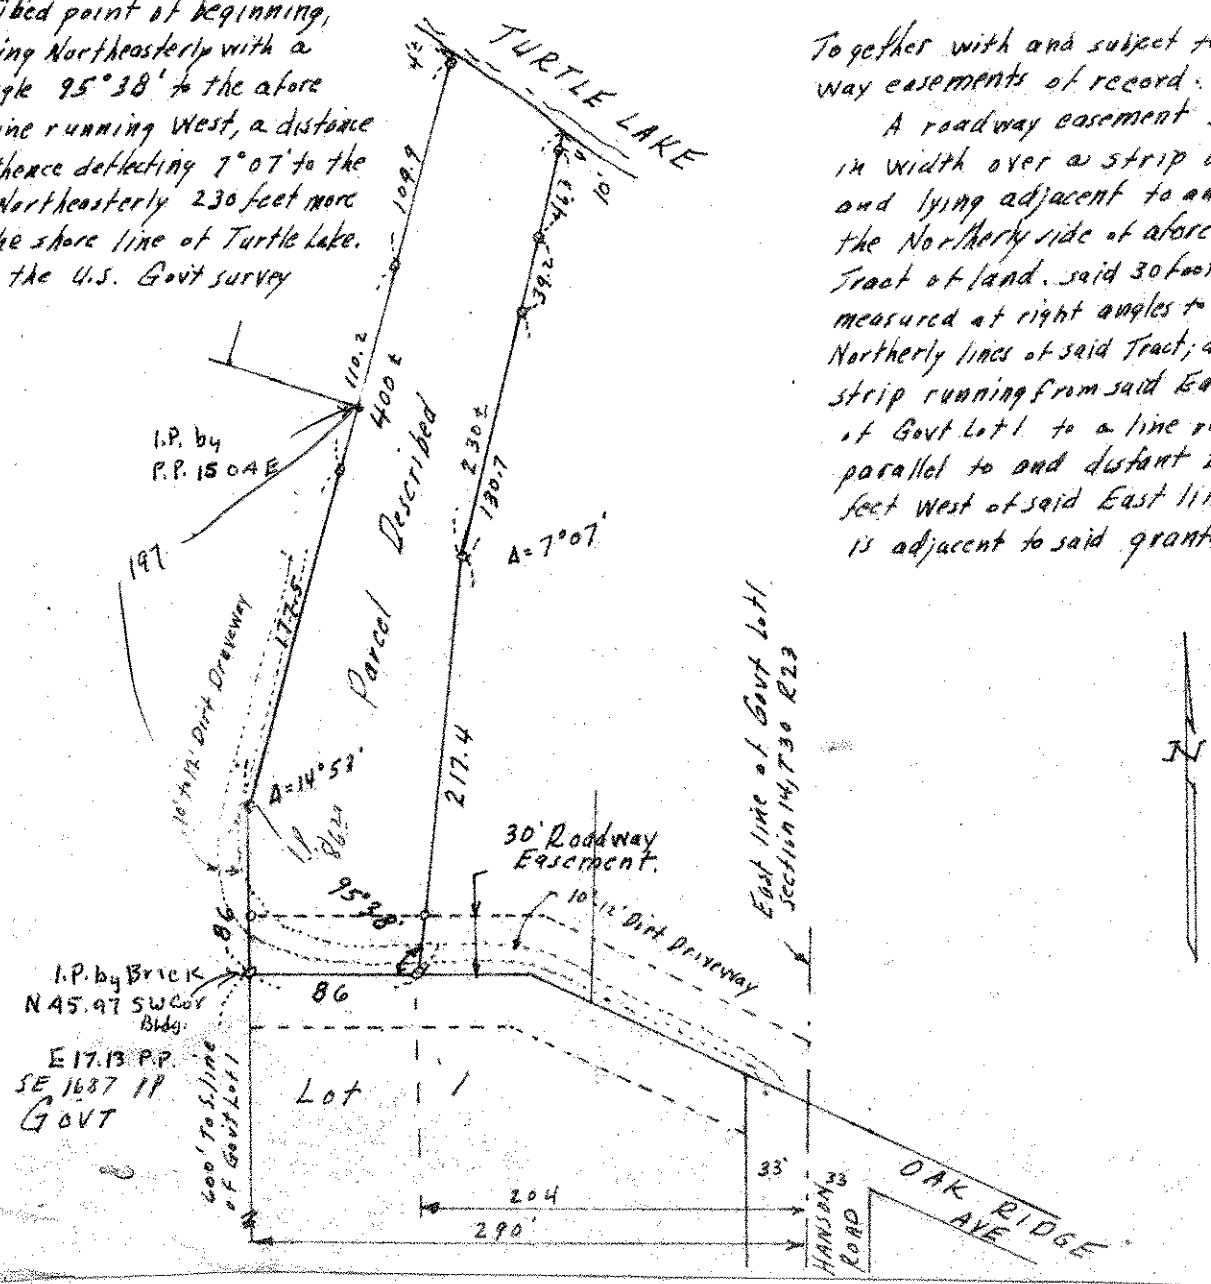 ibed point of beginning,
ing Northeasterly with a
gle 95°38' to the afore
ine running West, a distance
thence deflecting 7°07' to the
Northeasterly 230 feet more
he shore line of Turtle Lake.
the U.S. Gov't survey
Together with and subject t
way easements of record.
A roadway easement
in width over a strip o
and lying adjacent to an
the Northerly side of afore
Tract of land. said 30 foot
measured at right angles to
Northerly lines of said Tract; a
strip running from said Ea
of Govt Lot 1 to a line
parallel to and distant 2
feet West of said East lin
is adjacent to said grant
TURTLE LAKE
4±
109.9
10.
46.3
39.2
110.2
400±
230±
130.7
I.P. by
P.P. 1504E
197
Parcel Described
Δ=7°07'
177.5
10' to 12' Dirt Driveway
217.4
Δ=14°53'
I.P.
86.2
95°38'
30' Roadway
Easement.
10'-12' Dirt Driveway
East line of Govt Lot 1
section 14, T30 R23
N
86
I.P. by Brick
N 45.97 SW Cor
Bldg.
E 17.13 P.P.
SE 1687 PP
GOVT
86
Lot 1
600' To S. line
of Gov't Lot 1
33'
33
204
290'
HANSON
ROAD
OAK RIDGE
AVE